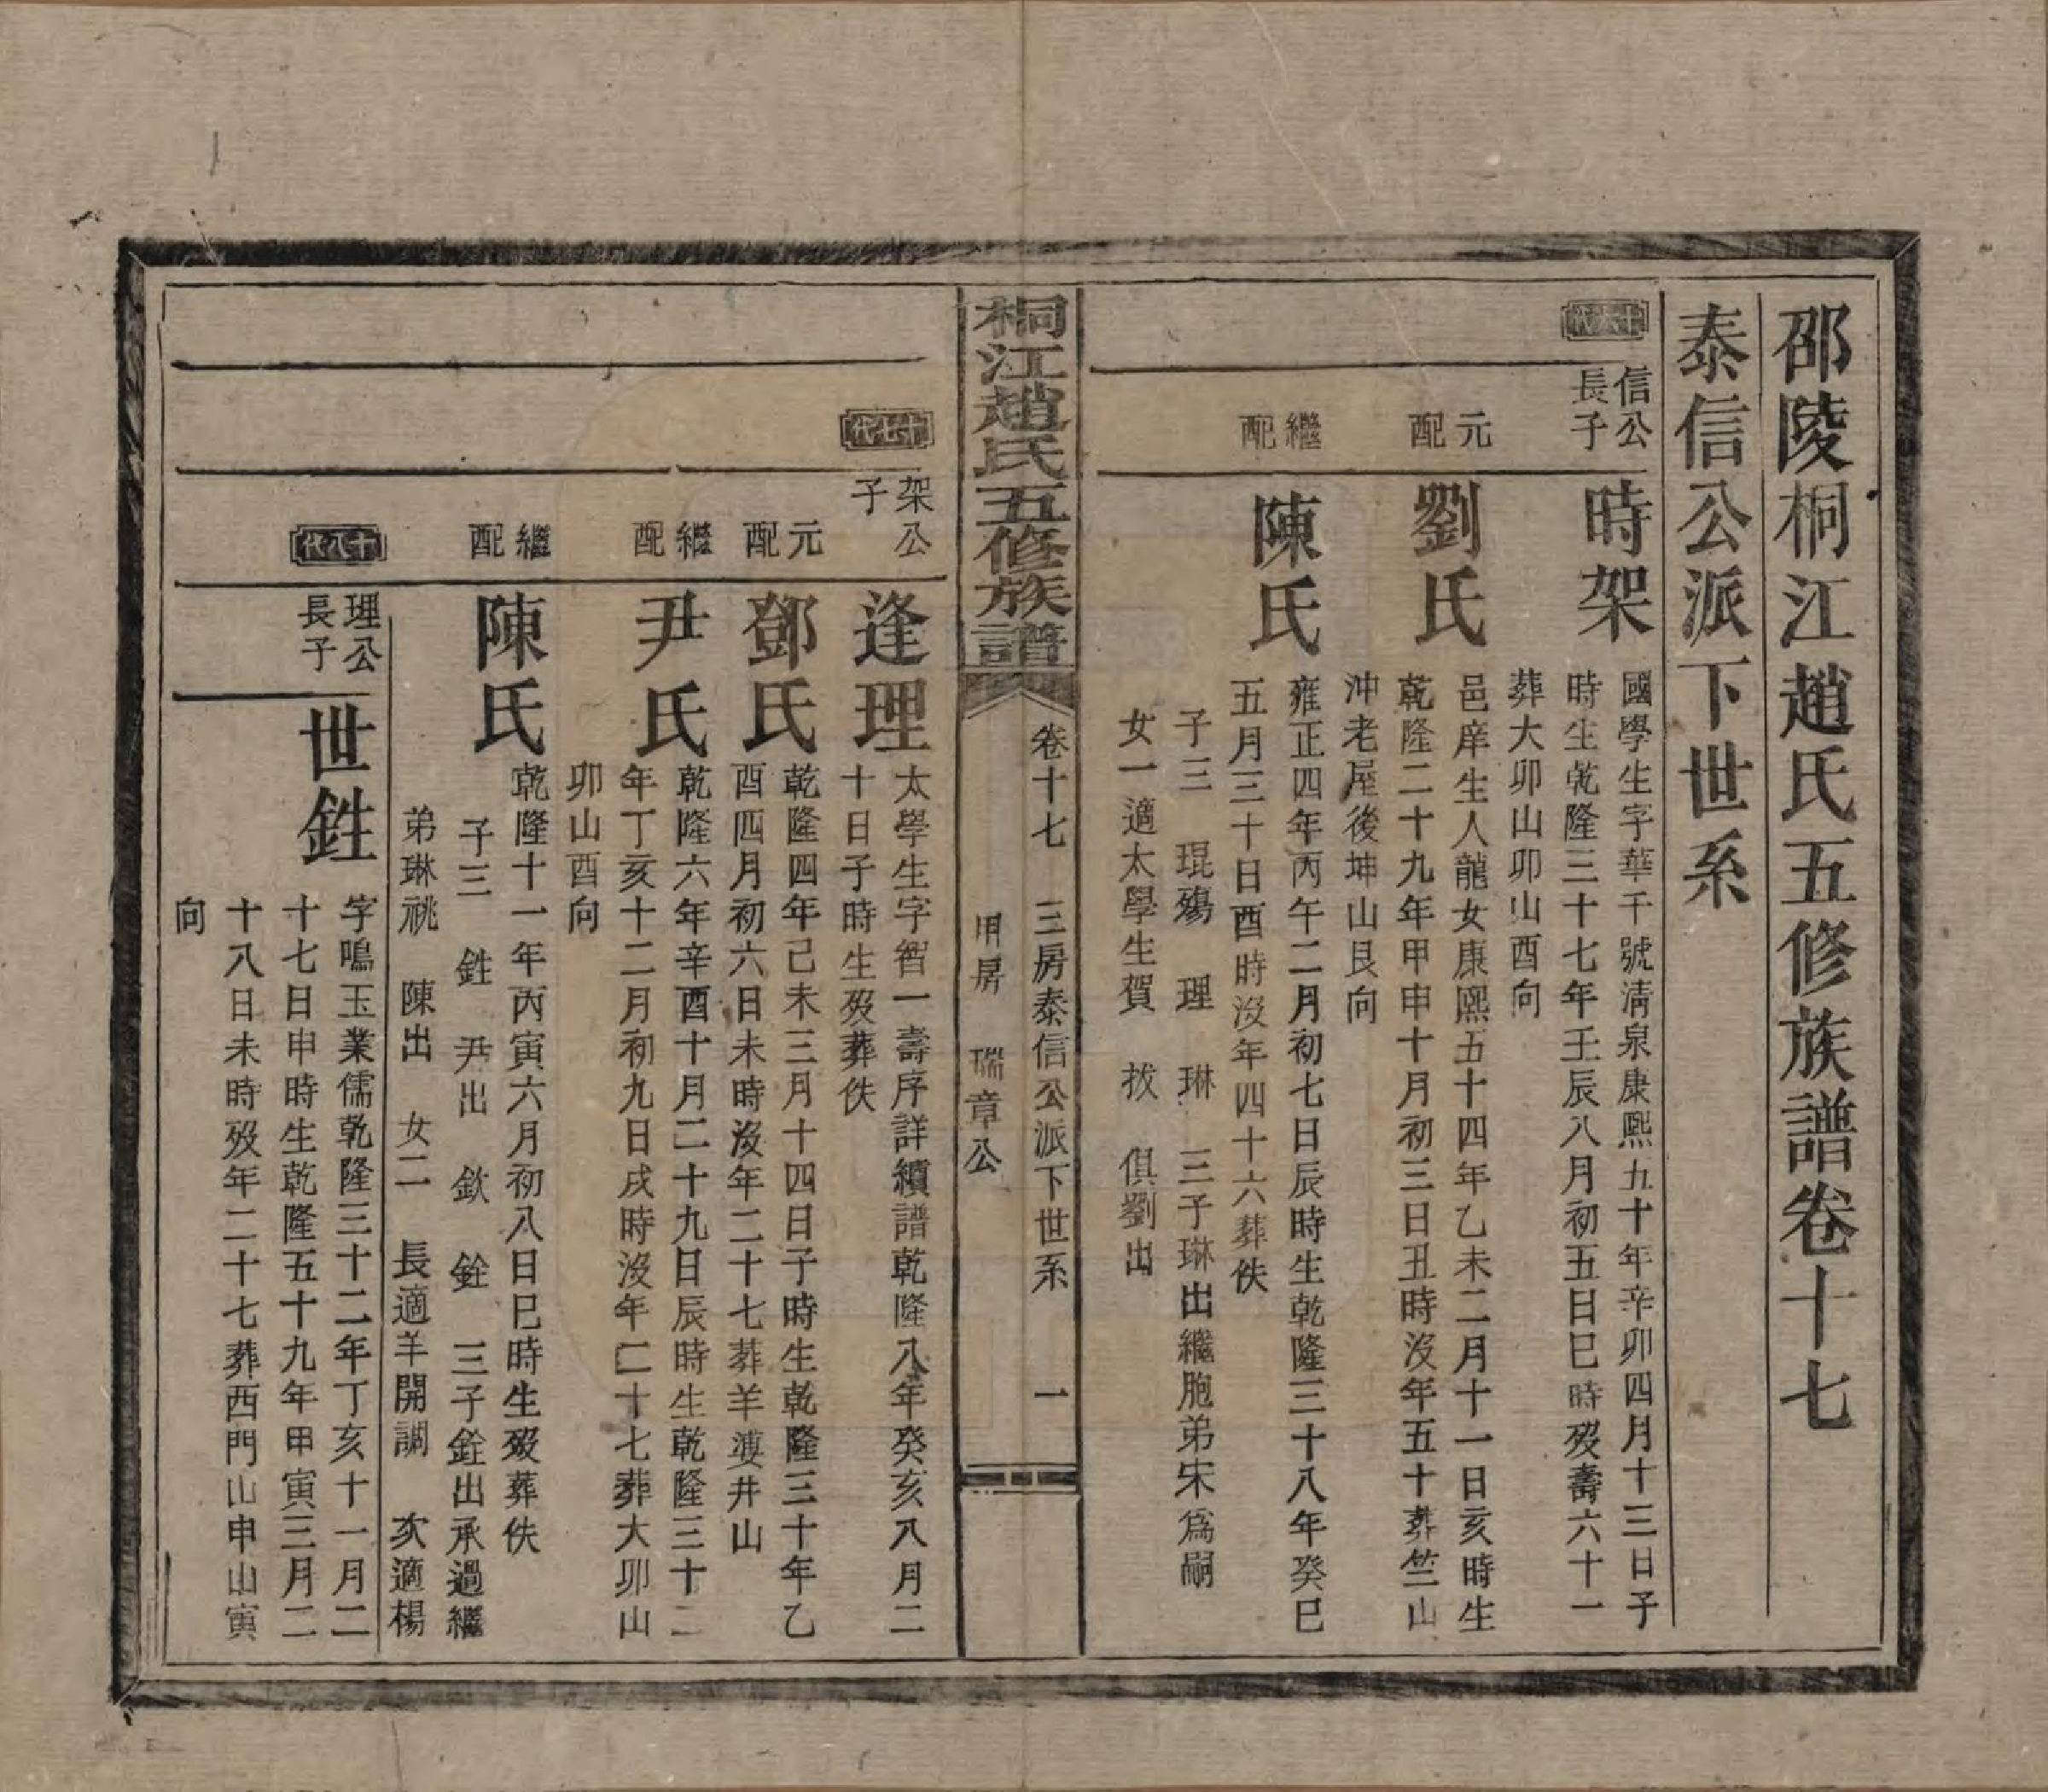 邵陵桐江趙氏五修族譜卷十七
泰信公派下世系
十六代
信公
長子
時架
國學生字華千號淸泉康熙五十年辛卯四月十三日子
時生乾隆三十七年壬辰八月初五日巳時歿壽六十一
葬大卯山卯山酉向
元配
劉氏
邑庠生人龍女康熙五十四年乙未二月十一日亥時生
乾隆二十九年甲申十月初三日丑時沒年五十葬竺山
沖老屋後坤山艮向
繼配
陳氏
雍正四年丙午二月初七日辰時生乾隆三十八年癸巳
五月三十日酉時沒年四十六葬佚
子三 琨殤 理 琳 三子琳出繼胞弟宋爲嗣
女一適太學生賀 拔 俱劉出
桐江趙氏五修族譜
卷十七 三房泰信公派下世系 一
甲房 瑞章公
十七代
架公
子
逢理
太學生字智一壽序詳續譜乾隆八年癸亥八月二
十日子時生歿葬佚
元配
鄧氏
乾隆四年己未三月十四日子時生乾隆三十年乙
酉四月初六日未時沒年二十七葬羊婆井山
繼配
尹氏
乾隆六年辛酉十月二十九日辰時生乾隆三十二
年丁亥十二月初九日戌時沒年二十七葬大卯山
卯山酉向
繼配
陳氏
乾隆十一年丙寅六月初八日巳時生歿葬佚
子三 鉎 尹出 欽 銓 三子銓出承過繼
弟琳祧 陳出 女二 長適羊開調 次適楊
十八代
理公
長子
世鉎
字鳴玉業儒乾隆三十二年丁亥十一月二
十七日申時生乾隆五十九年甲寅三月二
十八日未時歿年二十七葬西門山申山寅
向